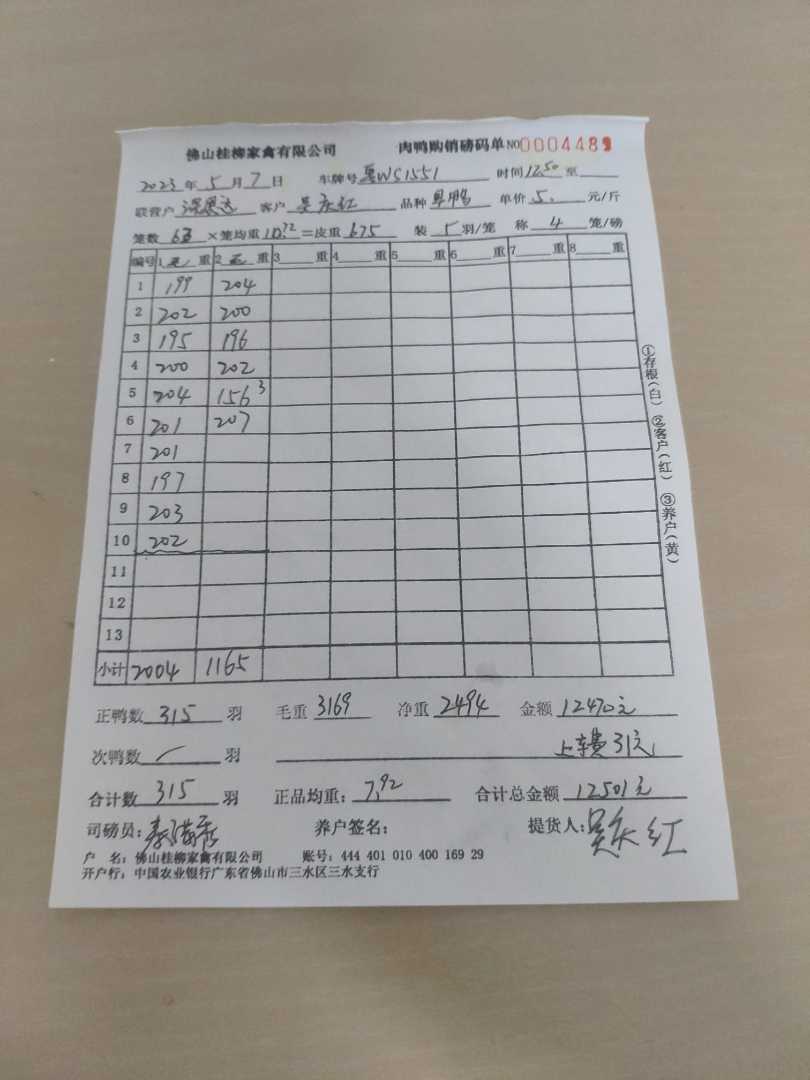 佛山桂柳家禽有限公司 肉鸭购销磅码单 NO 0004489
2023年5月7日 车牌号 粤WS1551 时间 12:50 至
联营户 客户 吴庆红 品种 单价 5. 元/斤
笼数 63 ×笼均重 10.72 =皮重 675 装 5 羽/笼 称 4 笼/磅
编号 1 毛 重 2 毛 重 3 重 4 重 5 重 6 重 7 重 8 重
1 199 204
2 202 200
3 195 196
4 200 202
5 204 156 3
6 201 207
7 201
8 197
9 203
10 202
11
12
13
小计 2004 1165
正鸭数 315 羽 毛重 3169 净重 2494 金额 12470元
次鸭数 羽 上车费31元
合计数 315 羽 正品均重: 7.92 合计总金额 12501元
司磅员: 养户签名: 提货人: 吴庆红
户 名: 佛山桂柳家禽有限公司 账号: 444 401 010 400 169 29
开户行: 中国农业银行广东省佛山市三水区三水支行
①存根(白) ②客户(红) ③养户(黄)